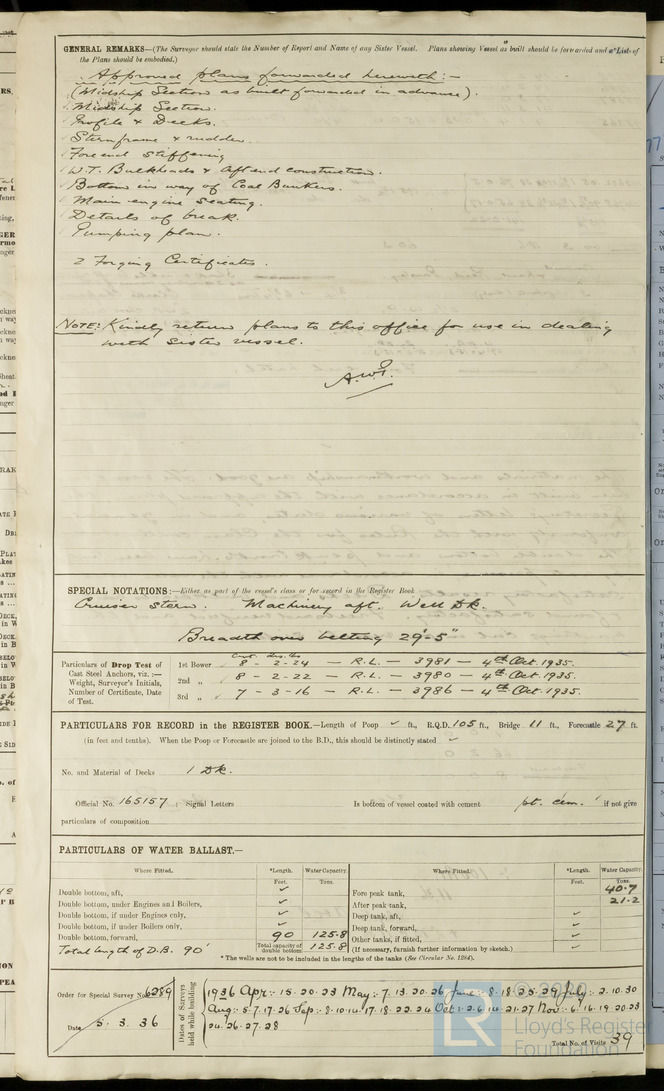 GENERAL REMARKS—(The Surveyor should state the Number of Report and Name of any Sister Vessel. Plans showing Vessel as built should be forwarded and a List of
the Plans should be embodied.)
Approved plans forwarded herewith:-
(Midship Section as built forwarded in advance).
Midship Section.
Profile & Decks.
Sternframe & rudder.
Fore end Stiffening
W.T. Bulkheads & Aft end construction.
Bottom in way of Coal Bunkers.
Main engine Seating.
Details of break.
Pumping plan.
2 Forging Certificates.
NOTE: Kindly return plans to this office for use in dealing
with sister vessel.
SPECIAL NOTATIONS:—Either as part of the vessel's class or for record in the Register Book
Cruiser Stern. Machinery aft. Well Dk.
Breadth over belting 29'-5"
Particulars of Drop Test of
Cast Steel Anchors, viz.:—
Weight, Surveyor's Initials,
Number of Certificate, Date
of Test.
cwt. qrs. lbs
1st Bower 8 - 2-24 — R.L. — 3981 — 4th Oct. 1935.
2nd „ 8 - 2-22 — R.L. — 3980 — 4th Oct. 1935.
3rd „ 7 - 3-16 — R.L. — 3986 — 4th Oct. 1935.
PARTICULARS FOR RECORD in the REGISTER BOOK.—Length of Poop ✓ ft., R.Q.D. 105 ft., Bridge 11 ft., Forecastle 27 ft.
(in feet and tenths). When the Poop or Forecastle are joined to the B.D., this should be distinctly stated ✓
No. and Material of Decks 1 Dk.
Official No. 165157 ; Signal Letters Is bottom of vessel coated with cement pt. cem. if not give
particulars of composition
PARTICULARS OF WATER BALLAST.—
Where Fitted. *Length. Water Capacity. Where Fitted. *Length. Water Capacity
Feet. Tons. Feet. Tons.
Double bottom, aft, ✓ Fore peak tank, 40.7
Double bottom, under Engines and Boilers, ✓ After peak tank, 21.2
Double bottom, if under Engines only, ✓ Deep tank, aft, ✓
Double bottom, if under Boilers only, ✓ Deep tank, forward, ✓
Double bottom, forward, 90 125.8 Other tanks, if fitted, ✓
Total length of D.B. 90' Total capacity of double bottom 125.8 (If necessary, furnish further information by sketch.) ✓
* The wells are not to be included in the lengths of the tanks (See Circular No. 1284).
Order for Special Survey No. 6289
Date 5.3.36
Dates of Surveys held while building
1936 Apr: 15.20.23 May: 7.13.20.26 June: 8.18.25.29 July: 2.10.30
Aug: 5.7.17.26 Sep: 8.10.14.17.18.22.24 Oct: 2.6.14.21.27 Nov: 6.16.19.20.23
24.26.27.28
Total No. of Visits 39
LR © 2020
Lloyd's Register
Foundation